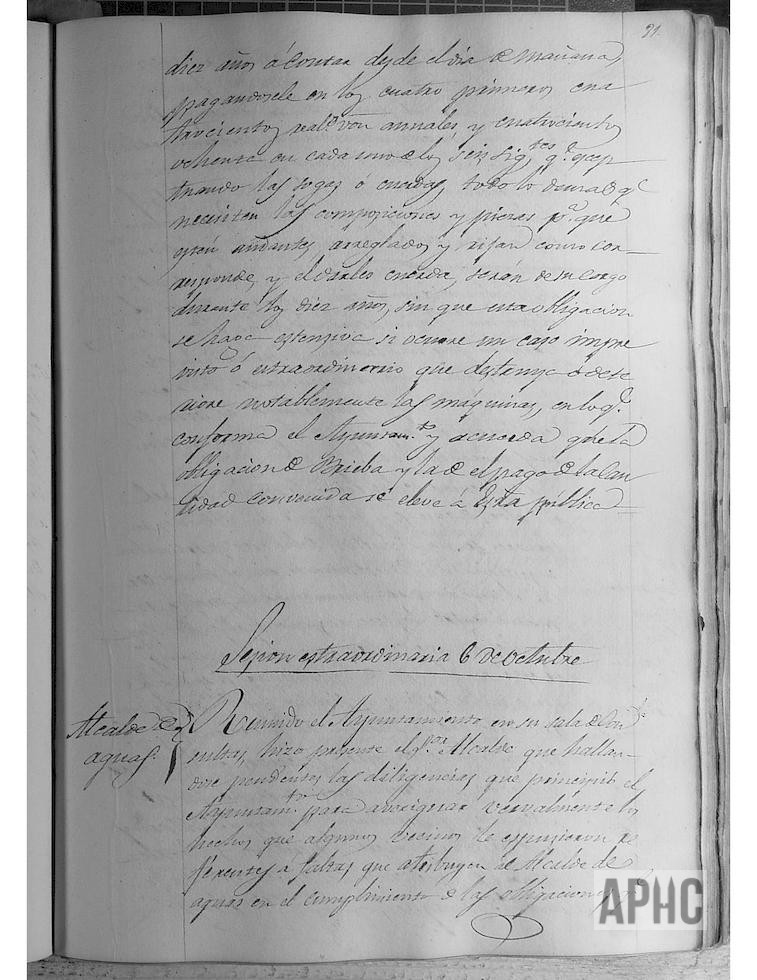 91.
diez años á contar desde el dia de mañana,
pagandosele en los cuatro primeros cua
trocientos real.s von annales, y cuatrocientos
ochenta en cada uno de los seis sig.tes q.e escep
tuando las sogas ó cuerdas, todo lo demas q.e
necesiten las composiciones y piezas p.a que
esten andantes, arreglados, y rijan como cor-
responde, y el darles cuerda, serán de su cargo
durante los diez años, sin que esta obligacion
se haga estensiva si ocurre un caso impre
visto ó estraordinario que destruya ó dete
riore notablemente las maquinas, en lo q.e
conforma el Ayuntam.to y acuerda que la
obligacion de Brieba y la de el pago de la can
tidad convenida se eleve á Esc.ra publica=
Sesion estraordinaria 6 de Octubre
Alcalde de
aguas.
Reunido el Ayuntamiento en su sala de Con
sultas, hizo presente el S.or Alcalde que hallan-
dose pendientes las diligencias que principió el
Ayuntam.to para averiguar vervalmente los
hechos que algunos vecinos le espusieron re
ferentes a faltas que atribuyen al Alcalde de
aguas en el cumplimiento de las obligaciones
APHC